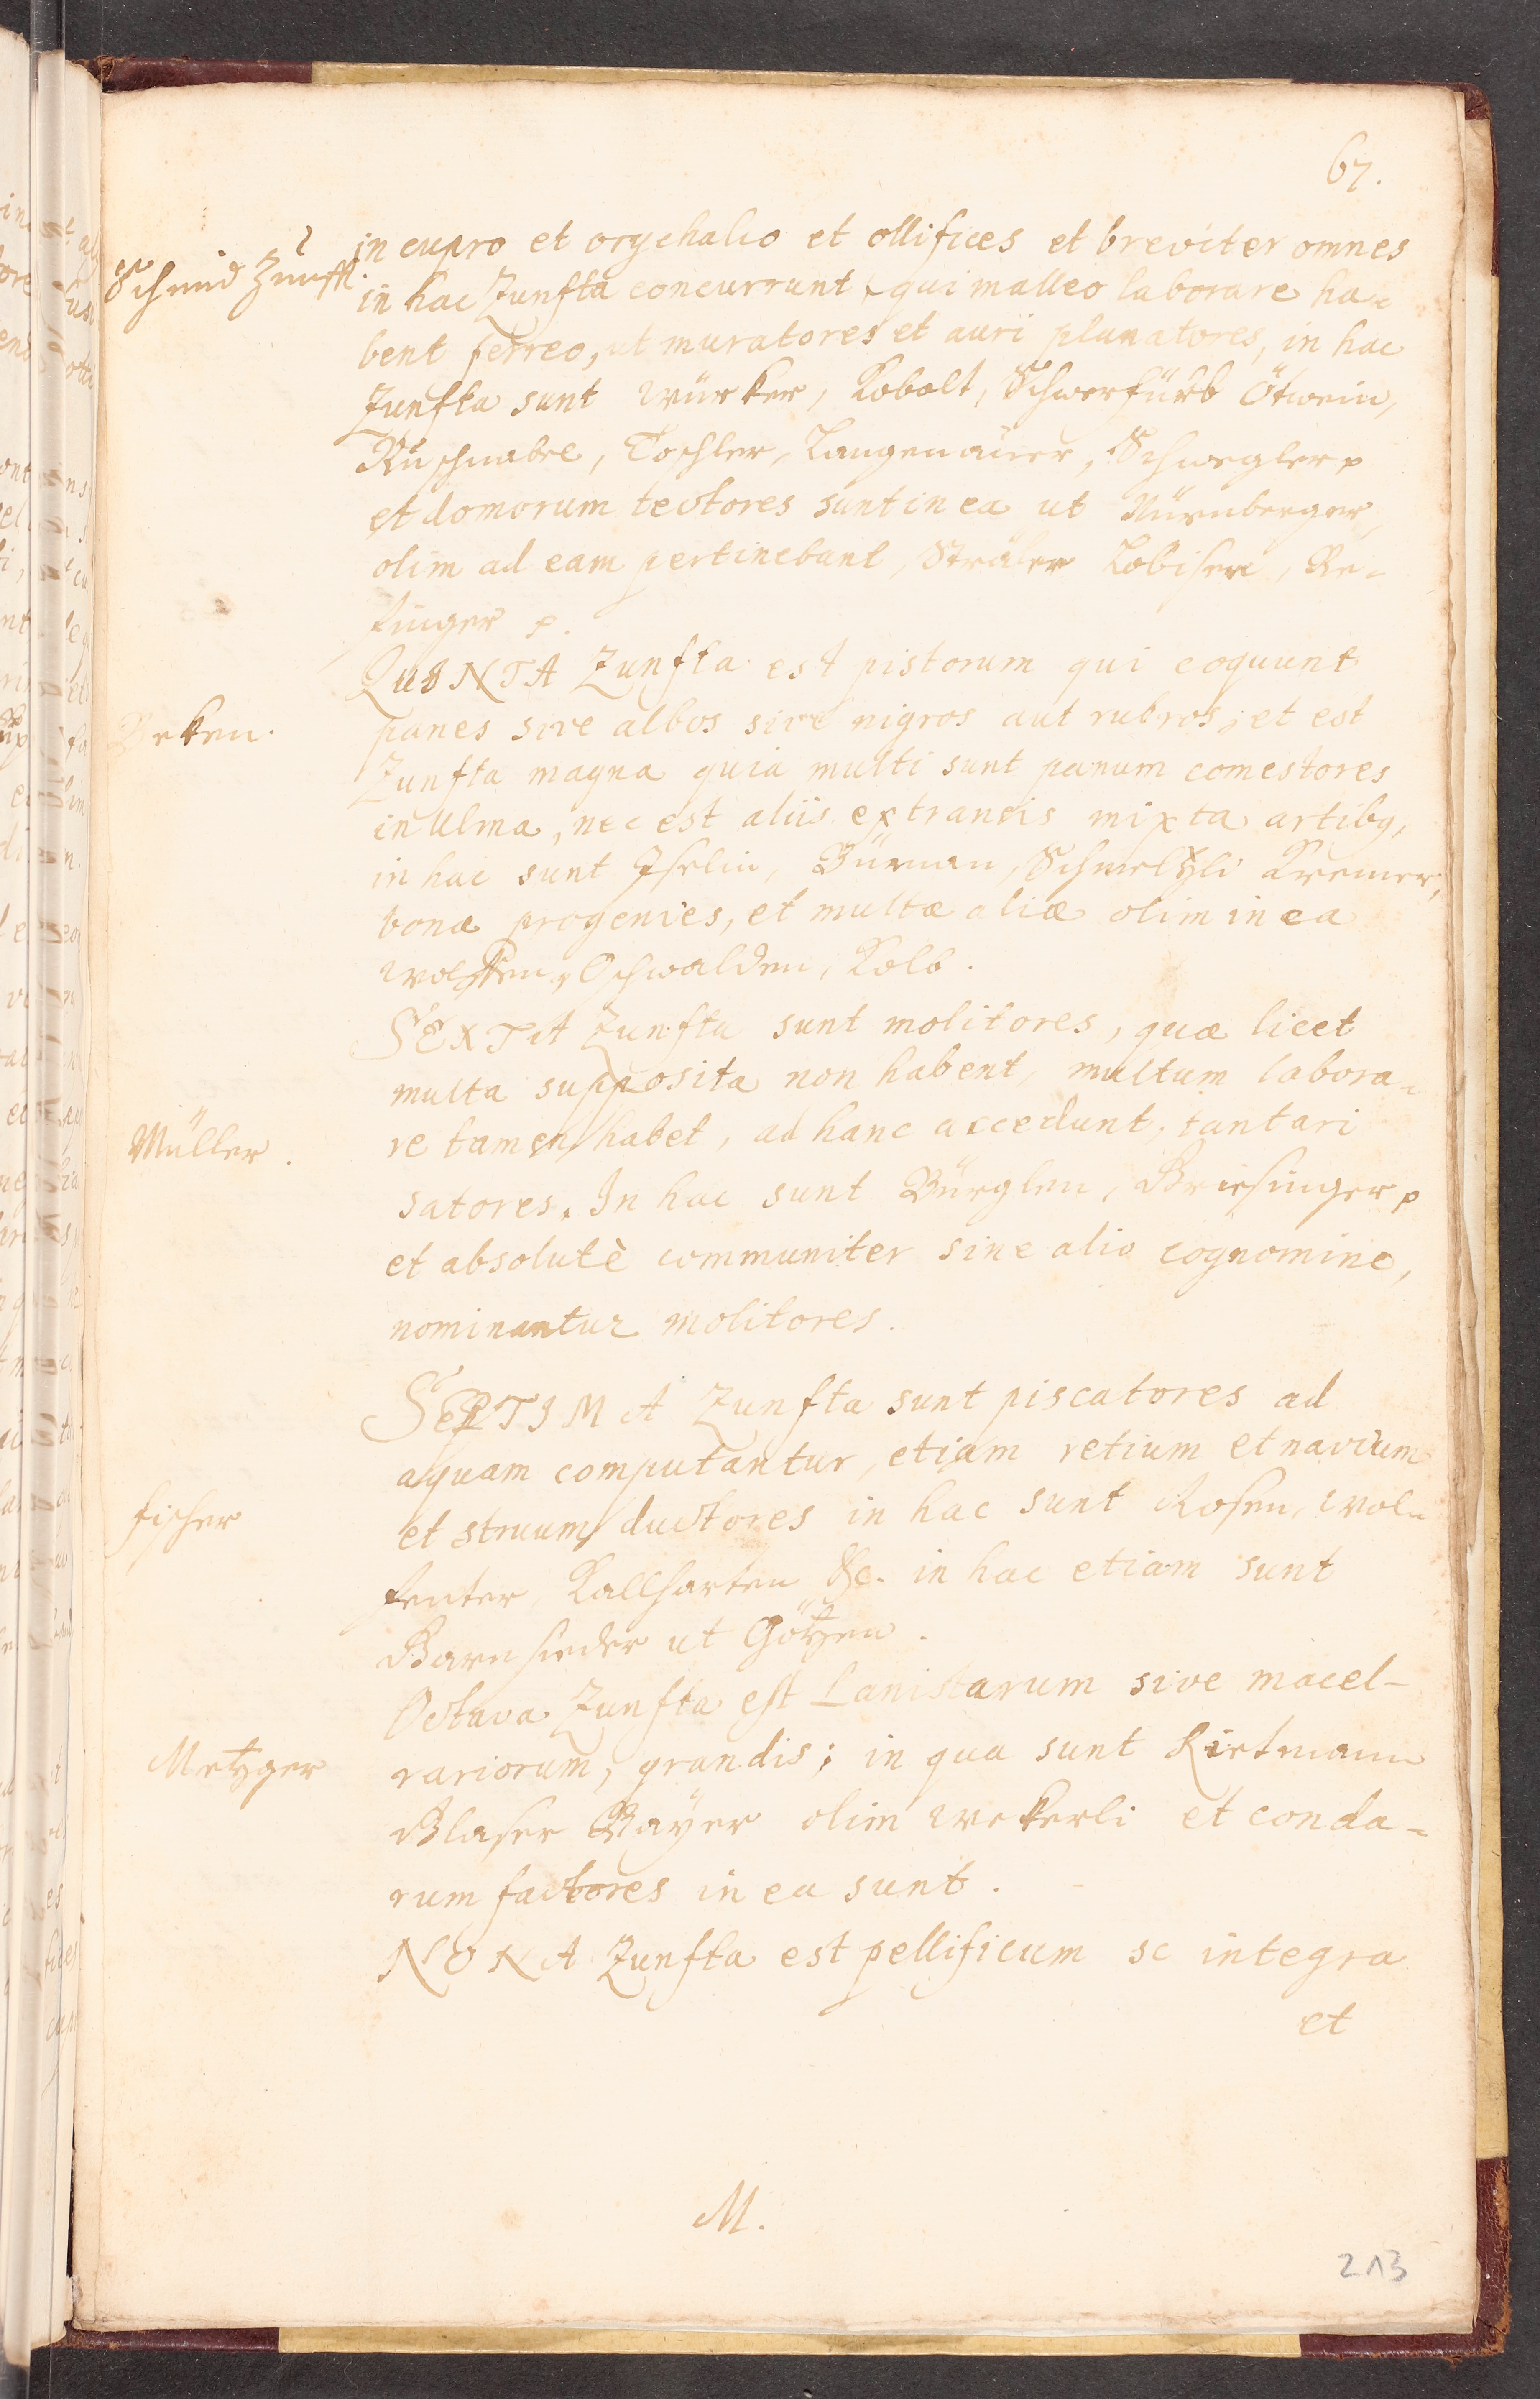 67.
Schmid Zunfft.
in cupro et orychalio et ollifices et breviter omnes
in hac Zunfta concurrunt, qui malleo laborare ha-
bent ferreo, ut muratores et auri planatores, in hac
Zunfta sunt Würker, Kobolt, Schwerfürb Ötwein,
Rüschnabel, Toschler, Langenaüer, Schwegler p
et domorum tectores sunt in ea ut Nürnberger,
olim ad eam pertinebant, Sträler Lobiser, Re-
finger p.
QUINTA Zunfta est pistorum qui coquunt
Beken.
panes sive albos sive nigros aut rubros, et est
Zunfta magna quia multi sunt panum comestores
in Ulma, nec est aliis extraneis mixta artibq,
in hac sunt Iselin, Büman, Schmeltzli Kremer,
bona progenies, et multæ aliæ olim in ea
Oschwalden, Kolb.
SEXTA Zunfta sunt molitores, quæ licet
multa supposita non habent, multum labora-
Müller.
re tamen habet, ad hanc accedunt, tantari
satores. In hac sunt Bürglen, Briesinger p
et absolutè communiter sine alio cognomine,
nominantur molitores.
SEPTIMA Zunfta sunt piscatores ad
aquam computantur, etiam retium et navium
fischer
et struum ductores in hac sunt Rosen, wol-
fenter, Kallharten &c. in hac etiam sunt
Barnsieder ut Götzen.
Octava Zunfta est Lanistarum sive macel-
Metzger
rariorum, grandis; in qua sunt Rietmann
Blaser Bayer olim wekerli et conda-
rum factores in ea sunt.
NONA Zunfta est pellificum sc integra
et
M.
213